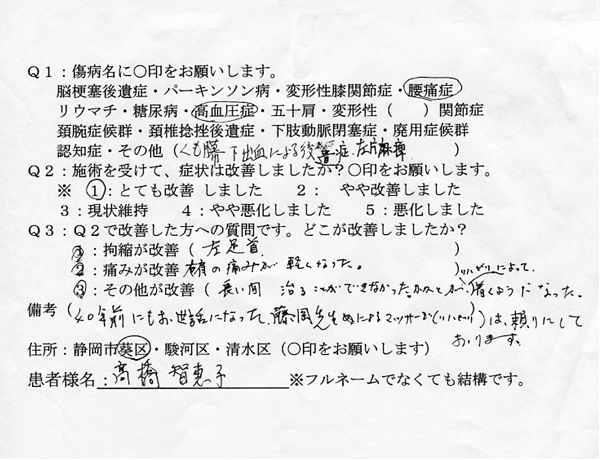 Q1：傷病名に〇印をお願いします。
脳梗塞後遺症・パーキンソン病・変形性膝関節症・腰痛症
リウマチ・糖尿病・高血圧症・五十肩・変形性（　　）関節症
頚腕症候群・頚椎捻挫後遺症・下肢動脈閉塞症・廃用症候群
認知症・その他（くも膜下出血による後遺症、左片麻痺）
Q2：施術を受けて、症状は改善しましたか？〇印をお願いします。
※ 1：とても改善 しました　2： やや改善しました
3：現状維持　4：やや悪化しました　5：悪化しました
Q3：Q2で改善した方への質問です。どこが改善しましたか？
1：拘縮が改善（左足首）
2：痛みが改善（肩の痛みが軽くなった。）
リハビリによって、
3：その他が改善（長い間 治ることができなかった 動くようになった。
備考（40年前にもお世話になった、先生 によるマッサージ（リハビリ））は、頼りにして
おります。
住所：静岡市葵区・駿河区・清水区（〇印をお願いします）
患者様名：高橋 智恵子　※フルネームでなくても結構です。